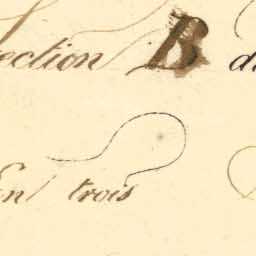 Section B d
En trois